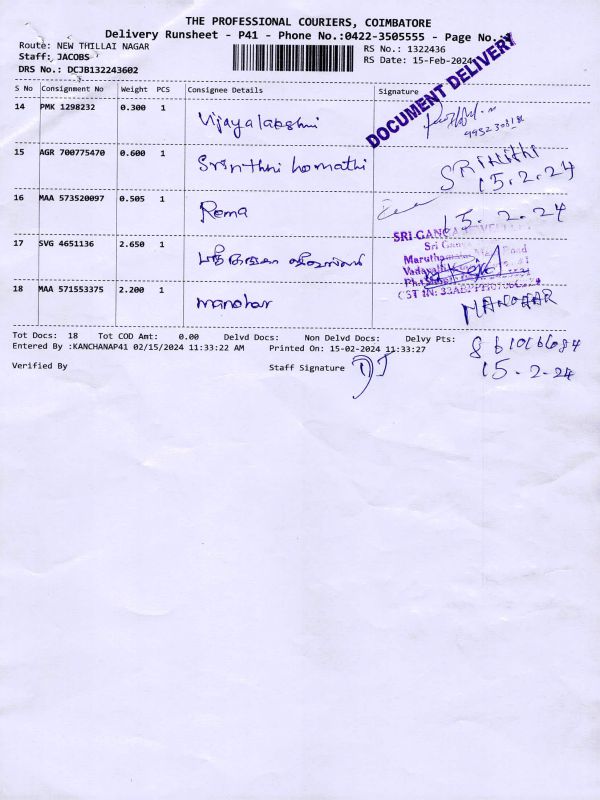 THE PROFESSIONAL COURIERS, COIMBATORE
Delivery Runsheet - P41 - Phone No.:0422-3505555 - Page No.:
Route: NEW THILLAI NAGAR
RS No.: 1322436
Staff: JACOBS
RS Date: 15-Feb-2024
DRS No.: DCJB132243602
DOCUMENT DELIVERY
S No Consignment No Weight PCS Consignee Details Signature
14 PMK 1298232 0.300 1 Vijayalakshmi
15 AGR 700775470 0.600 1 Srinithi
SRINITHI
15.2.24
16 MAA 573520097 0.505 1 Rema
15.2.24
17 SVG 4651136 2.650 1
SRI GANGA
Sri Ganga
Road
18 MAA 571553375 2.200 1 manohar
MANOHAR
Tot Docs: 18 Tot COD Amt: 0.00 Delvd Docs: Non Delvd Docs: Delvy Pts:
Entered By :KANCHANAP41 02/15/2024 11:33:22 AM Printed On: 15-02-2024 11:33:27
15.2.24
Verified By Staff Signature